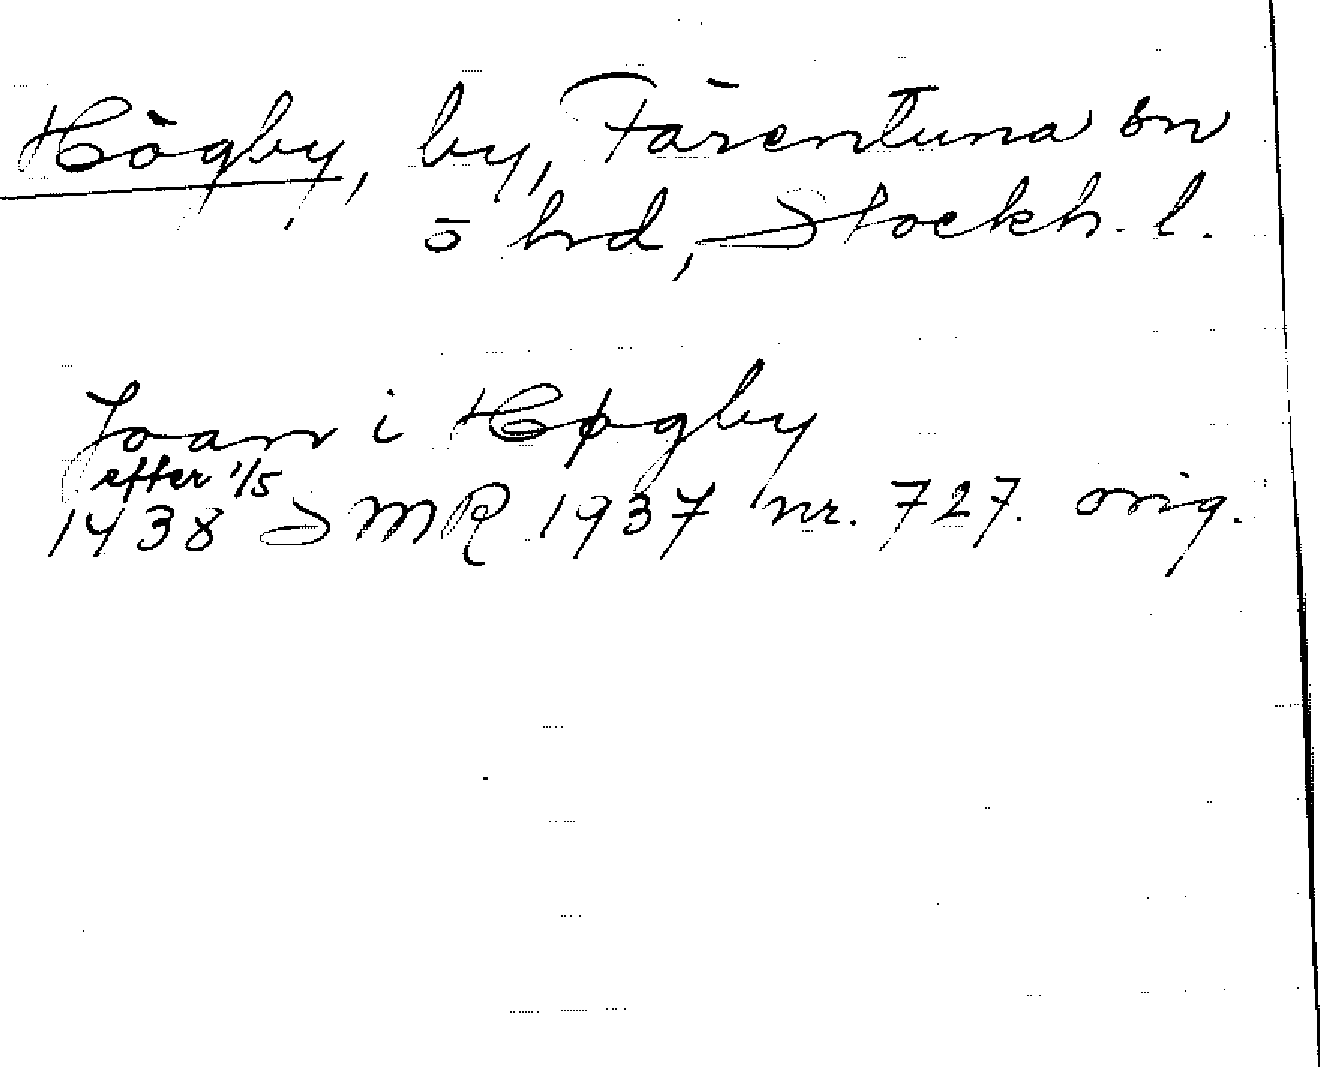 Högby, by, Färentuna sn
o hrd, Stockh. l.
Joan i Høgby
efter 1/5
1438 SMR 1937 nr. 727. orig.